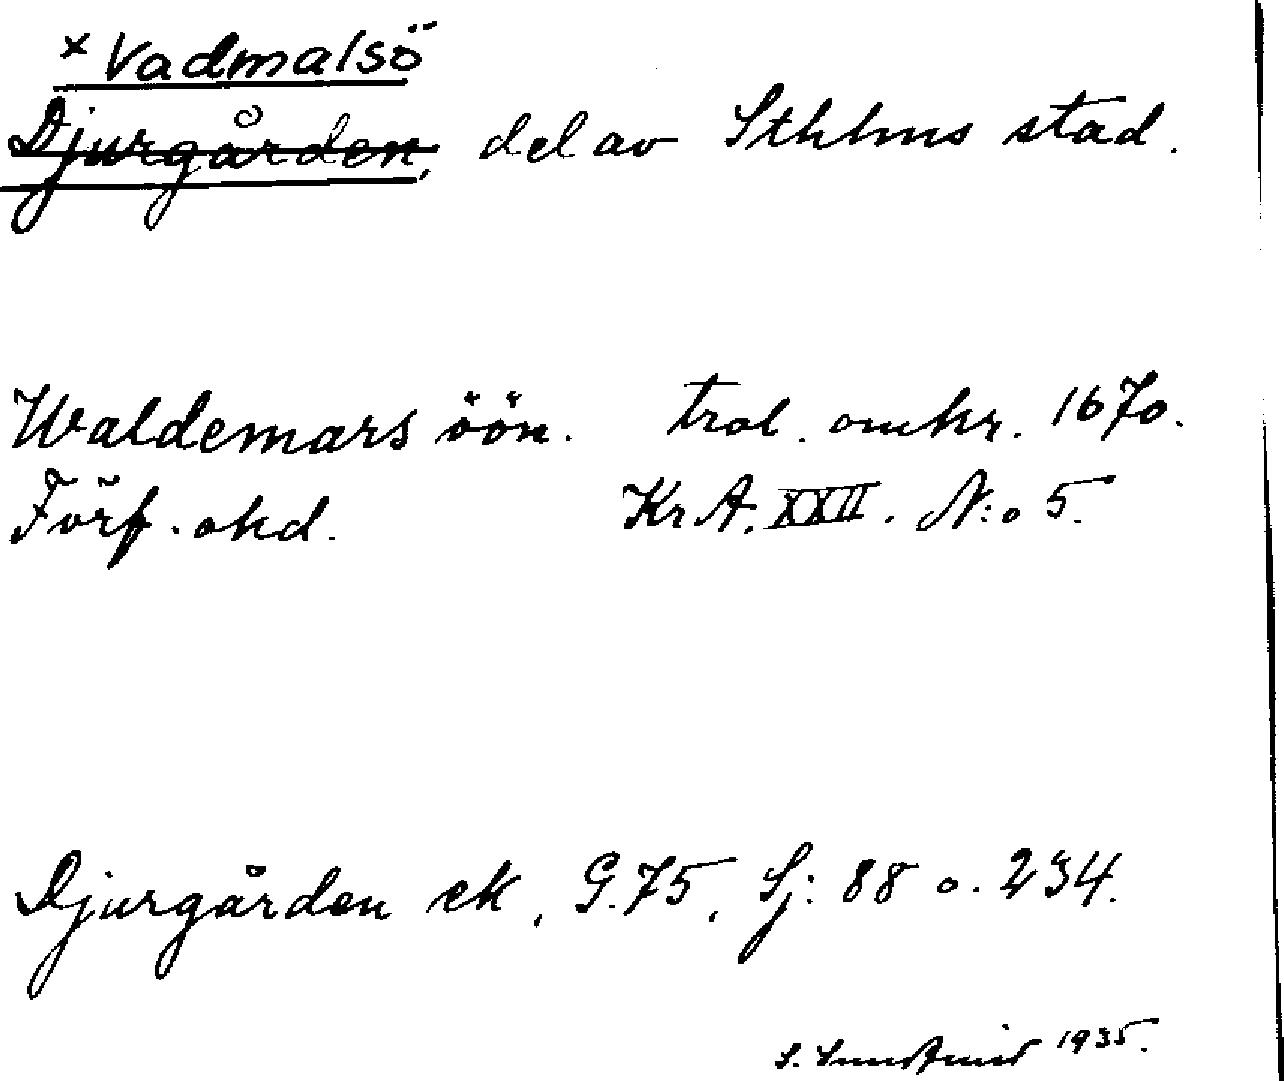 × Vadmalsö
Djurgården, del av Sthlms stad.
Waldemars öön. trol. omkr. 1670.
Förf. okd. Kr A. XXII. N:o 5.
Djurgården ek, G.75, Sj: 88 o. 234.
S. 1935.